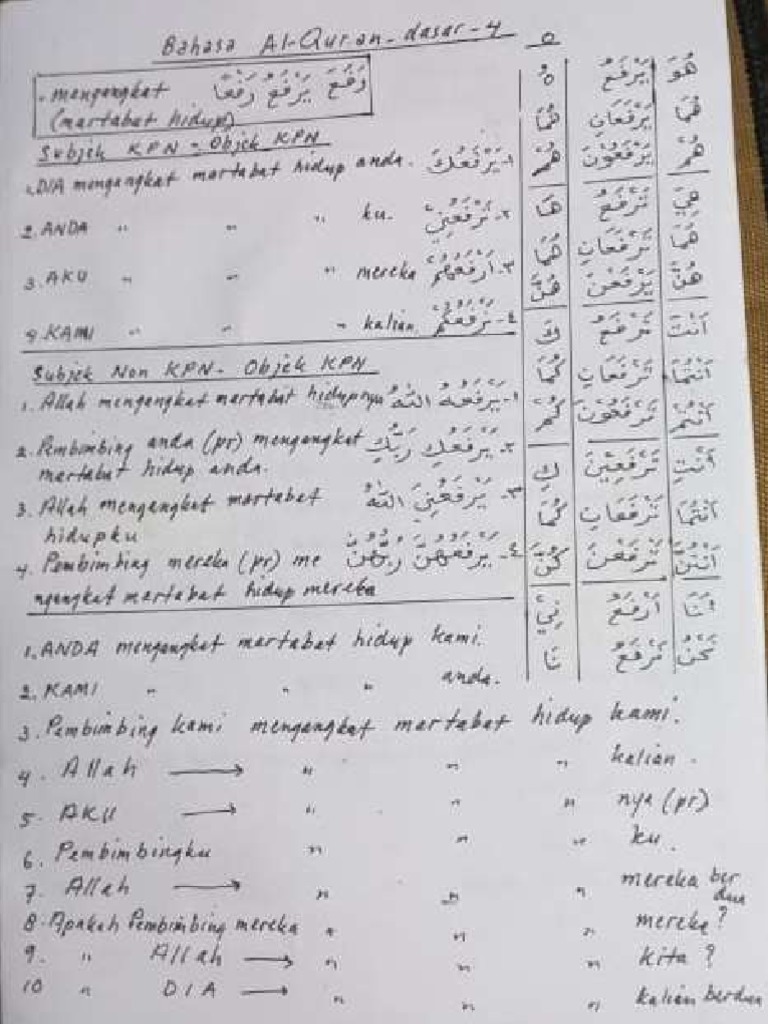 Bahasa Al-Quran-dasar-4
- mengangkat رَفَعَ يَرْفَعُ رَفْعًا
(martabat hidup)
Subjek KPN - Objek KPN
1. DIA mengangkat martabat hidup anda. ١- يَرْفَعُكَ
2. ANDA " " " ku. ٢- تَرْفَعُنِيْ
3. AKU " " " mereka ٣- أَرْفَعُهُمْ
4. KAMI " " " kalian. ٤- نَرْفَعُكُمْ
Subjek Non KPN - Objek KPN
1. Allah mengangkat martabat hidupnya ١- يَرْفَعُهُ اللّٰهُ
2. Pembimbing anda (pr) mengangkat ٢- يَرْفَعُكِ رَبُّكِ
martabat hidup anda.
3. Allah mengangkat martabat ٣- يَرْفَعُنِيَ اللّٰهُ
hidupku
4. Pembimbing mereka (pr) me ٤- يَرْفَعُهُنَّ رَبُّهُنَّ
ngangkat martabat hidup mereka
هُوَ يَرْفَعُ هُ
هُمَا يَرْفَعَانِ هُمَا
هُمْ يَرْفَعُوْنَ هُمْ
هِيَ تَرْفَعُ هَا
هُمَا تَرْفَعَانِ هُمَا
هُنَّ يَرْفَعْنَ هُنَّ
أَنْتَ تَرْفَعُ كَ
أَنْتُمَا تَرْفَعَانِ كُمَا
أَنْتُمْ تَرْفَعُوْنَ كُمْ
أَنْتِ تَرْفَعِيْنَ كِ
أَنْتُمَا تَرْفَعَانِ كُمَا
أَنْتُنَّ تَرْفَعْنَ كُنَّ
أَنَا أَرْفَعُ نِيْ
نَحْنُ نَرْفَعُ نَا
1. ANDA mengangkat martabat hidup kami.
2. KAMI " " " anda.
3. Pembimbing kami mengangkat martabat hidup kami.
4. Allah → " " " kalian.
5. AKU → " " " nya (pr)
6. Pembimbingku " " " ku.
7. Allah → " " " mereka ber
dua
8. Apakah Pembimbing mereka " " " mereka?
9. " Allah → " " " kita?
10 " DIA → " " " kalian berdua